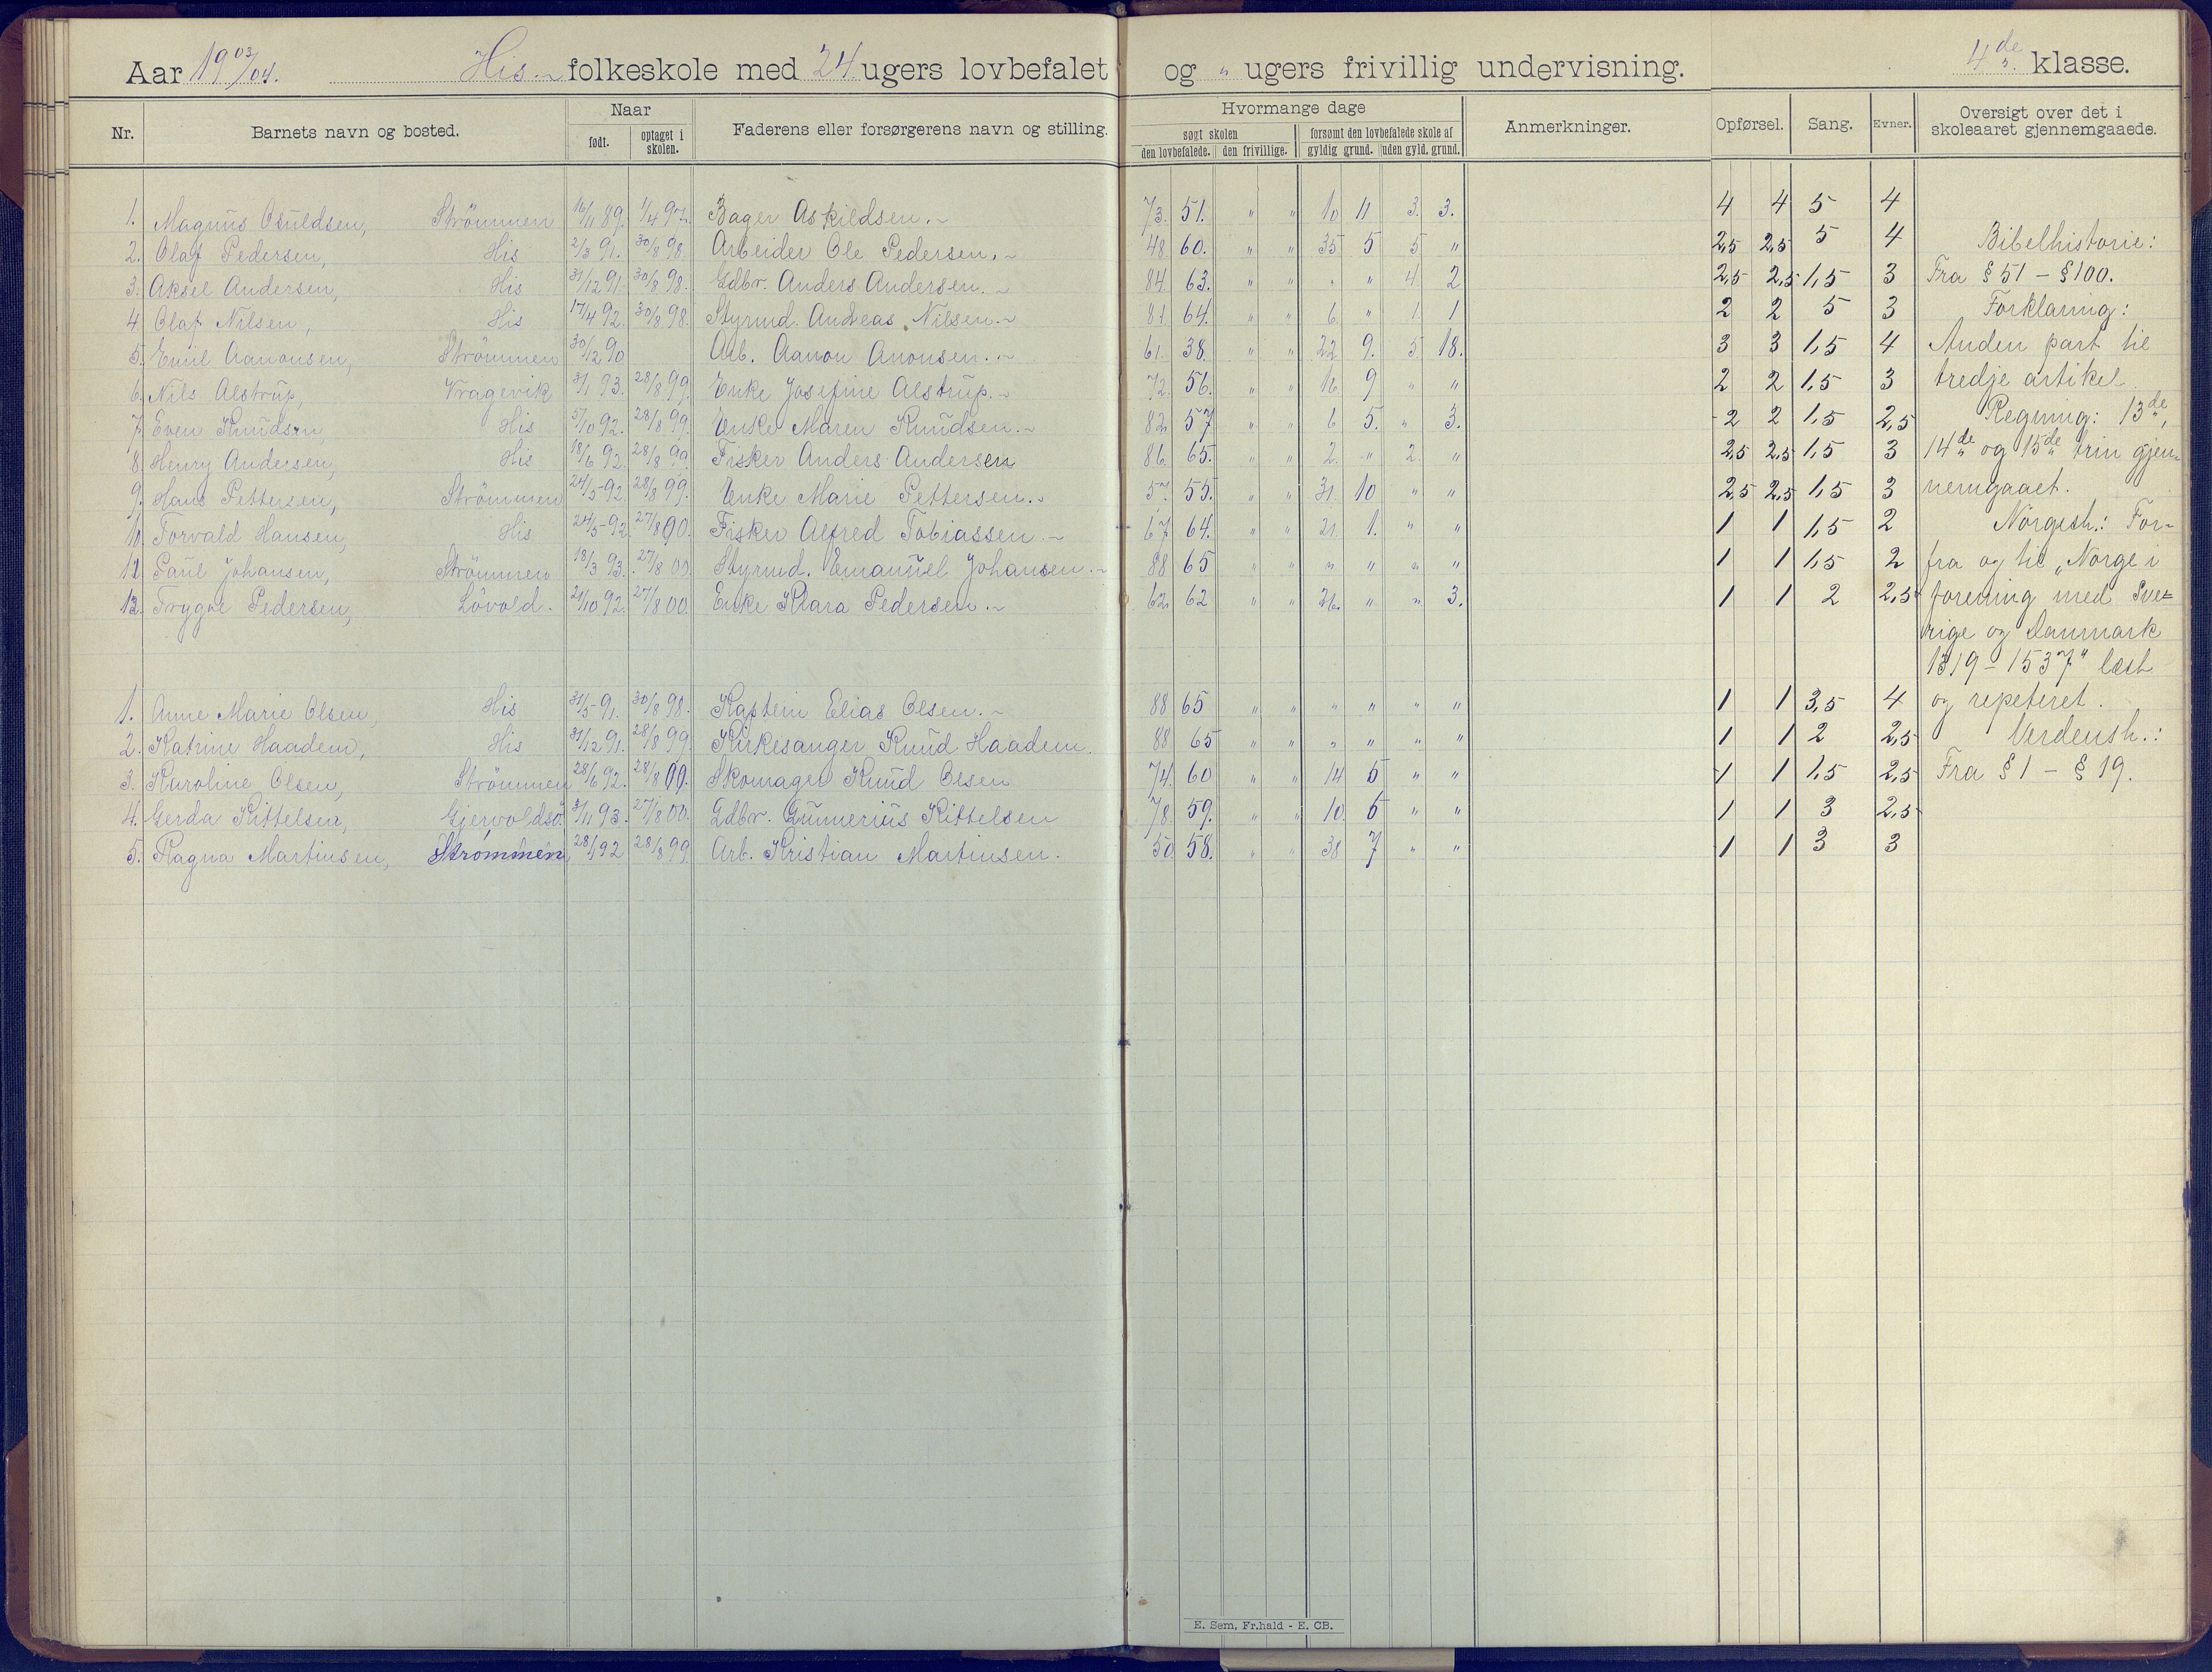 Aar 19 03/04. His folkeskole med 24 ugers lovbefalet og " ugers frivillig undervisning. 4de klasse.
Nr. Barnets navn og bosted. Naar født. optaget i skolen. Faderens eller forsørgerens navn og stilling. Hvormange dage søgt skolen den lovbefalede. den frivillige. forsømt den lovbefalede skole af gyldig grund. uden gyld. grund. Anmerkninger. Opførsel. Sang. Evner. Oversigt over det i skoleaaret gjennemgaaede.
1. Magnus Osuldsen, Strömmen 16/11 89. 1/4 97. Bager Askildsen. 73. 51. " " 10 11 3. 3. 4 4 5 4
2. Olaf Pedersen, His 2/3 91. 30/8 98. Arbeider Ole Pedersen. 48 60. " " 35 5 5 " 2,5 2,5 5 4 Bibelhistorie:
3. Aksel Andersen, His 31/12 91. 30/8 98. Gdbr. Anders Andersen. 84 63. " " " " 4 2 2,5 2,5 1,5 3 Fra § 51 - § 100.
4. Olaf Nilsen, His 17/4 92. 30/8 98. Styrmd. Andreas Nilsen. 81 64. " " 6 " 1 1 2 2 5 3 Forklaring:
5. Emil Aanonsen, Strömmen 30/12 90 Arb. Aanon Anonsen. 61. 38. " " 22 9. 5 18. 3 3 1,5 4 Anden part til
6. Nils Alstrup, Vragevik 31/1 93. 28/8 99. Enke Josefine Alstrup. 72. 56. " " 16 9 " " 2 2 1,5 3 tredje artikel
7. Even Knudsen His 5/10 92. 28/8 99. Enke Maren Knudsen. 82. 57 " " 6 5. " 3. 2 2 1,5 2,5 Regning: 13de,
8. Henry Andersen, His 18/6 92. 28/8 99. Fisker Anders Andersen 86. 65. " " 2. " 2. " 2,5 2,5 1,5 3 14de og 15de trin gjen-
9. Hans Pettersen, Strömmen 24/5 92. 28/8 99. Enke Marie Pettersen. 57. 55. " " 31. 10 " " 2,5 2,5 1,5 3 nemgaaet.
10. Torvald Hansen, His 24/5 92. 27/8 00. Fisker Alfred Tobiassen 67 64. " " 21. 1. " " 1 1 1,5 2 Norgesh.: For-
11. Paul Johansen, Strömmen 18/3 93. 27/8 00 Styrmd. Emanuel Johansen. 88 65 " " " " " " 1 1 1,5 2 fra og til "Norge i
12. Trygve Pedersen, Lövold. 21/10 92. 27/8 00. Enke Klara Pedersen. 62. 62 " " 26. " " 3. 1 1 2 2,5 forening med Sve-
rige og Danmark
1319 - 1537" læst
1. Anne Marie Olsen, His 31/5 91. 30/8 98. Kaptein Elias Olsen. 88 65 " " " " " " 1 1 3,5 4 og repeteret.
2. Katrine Haadem, His 31/12 91. 28/8 99. Kirkesanger Knud Haadem. 88 65 " " " " " " 1 1 2 2,5 Verdensh.:
3. Karoline Olsen, Strömmen 28/6 92. 28/8 00. Skomager Knud Olsen 74. 60 " " 14 5 " " 1 1 1,5 2,5 Fra § 1 - § 19.
4. Gerda Kittelsen, Gjervoldsö. 3/11 93. 27/8 00. Gdbr. Gunnerius Kittelsen 78. 59. " " 10. 6 " " 1 1 3 2,5
5. Ragna Martinsen, Strømmen 28/1 92 28/8 99. Arb. Kristian Martinsen. 50 58. " " 38 7 " " 1 1 3 3
E. Sem, Fr.hald - E. CB.